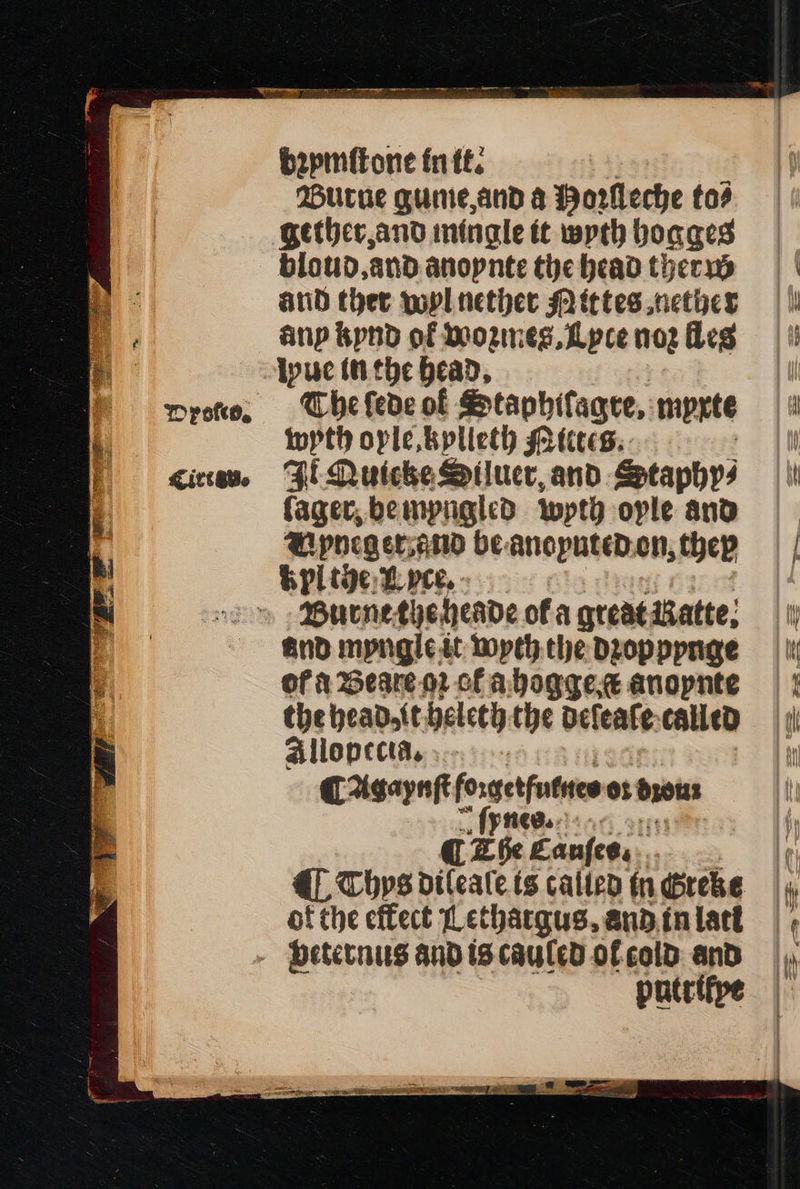 brymſtone in it.
Burne gume, and a Horſleche to⸗
gether, and mingle it wyth hogges
bloud, and anoynte the head therwͭ
and ther wyl nether Nittes, nether
any kynd of wormes, Lyce nor fles
lyue in the head.
Dyoſco. The ſede of Staphiſagre, myxte
wyth oyle, kylleth Nittes.
Circaw. If Quicke Siluer, and Staphy⸗
ſager, be myngled wyth oyle and
Vyneger, and be anoynted on, they
kyl the Lyce.
Burne the heade of a great Ratte,
and myngle it wyth the droppynge
of a Beare or of a hogge, & anoynte
the head, it heleth the deſeaſe called
Allopecia.
¶ Agaynſt forgetfulnes or drous
ſynes.
¶ The Cauſes.
¶ Thys diſeaſe is called in Greke
of the effect Lethargus, and in latī
veternus and is cauſed of cold and
putrifye